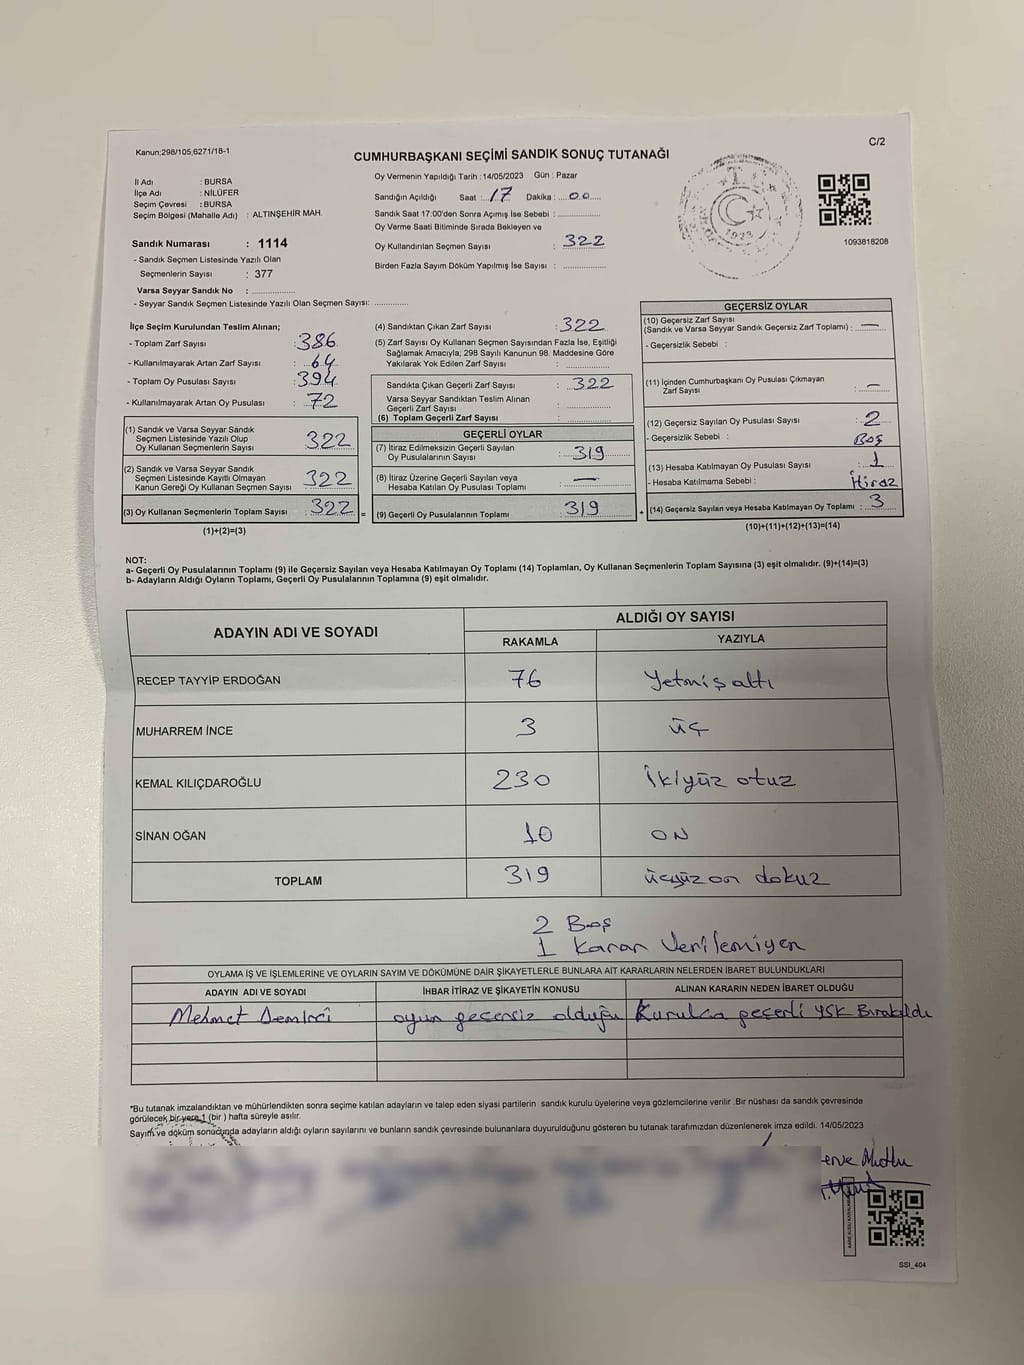 Kanun;298/105,6271/18-1
C/2
CUMHURBAŞKANI SEÇİMİ SANDIK SONUÇ TUTANAĞI
İl Adı : BURSA
İlçe Adı : NİLÜFER
Seçim Çevresi : BURSA
Seçim Bölgesi (Mahalle Adı) : ALTINŞEHİR MAH.
Sandık Numarası : 1114
- Sandık Seçmen Listesinde Yazılı Olan
Seçmenlerin Sayısı : 377
Varsa Seyyar Sandık No : ..............
- Seyyar Sandık Seçmen Listesinde Yazılı Olan Seçmen Sayısı: ..............
Oy Vermenin Yapıldığı Tarih : 14/05/2023 Gün : Pazar
Sandığın Açıldığı Saat : 17 Dakika : 00
Sandık Saat 17:00'den Sonra Açımış İse Sebebi : ..............
Oy Verme Saati Bitiminde Sırada Bekleyen ve
Oy Kullandırılan Seçmen Sayısı : 322
Birden Fazla Sayım Döküm Yapılmış İse Sayısı : ..............
1923
1093818208
İlçe Seçim Kurulundan Teslim Alınan;
- Toplam Zarf Sayısı : 386
- Kullanılmayarak Artan Zarf Sayısı : 64
- Toplam Oy Pusulası Sayısı : 394
- Kullanılmayarak Artan Oy Pusulası : 72
(1) Sandık ve Varsa Seyyar Sandık
Seçmen Listesinde Yazılı Olup
Oy Kullanan Seçmenlerin Sayısı 322
(2) Sandık ve Varsa Seyyar Sandık
Seçmen Listesinde Kayıtlı Olmayan
Kanun Gereği Oy Kullanan Seçmen Sayısı 322
(3) Oy Kullanan Seçmenlerin Toplam Sayısı 322 =
(1)+(2)=(3)
(4) Sandıktan Çıkan Zarf Sayısı : 322
(5) Zarf Sayısı Oy Kullanan Seçmen Sayısından Fazla İse, Eşitliği
Sağlamak Amacıyla; 298 Sayılı Kanunun 98. Maddesine Göre
Yakılarak Yok Edilen Zarf Sayısı : ..............
Sandıkta Çıkan Geçerli Zarf Sayısı : 322
Varsa Seyyar Sandıktan Teslim Alınan
Geçerli Zarf Sayısı : ..............
(6) Toplam Geçerli Zarf Sayısı : ..............
GEÇERLİ OYLAR
(7) İtiraz Edilmeksizin Geçerli Sayılan
Oy Pusulalarının Sayısı : 319
(8) İtiraz Üzerine Geçerli Sayılan veya
Hesaba Katılan Oy Pusulaları Toplamı : —
(9) Geçerli Oy Pusulalarının Toplamı : 319 +
GEÇERSİZ OYLAR
(10) Geçersiz Zarf Sayısı
(Sandık ve Varsa Seyyar Sandık Geçersiz Zarf Toplamı) : —
- Geçersizlik Sebebi :
(11) İçinden Cumhurbaşkanı Oy Pusulası Çıkmayan
Zarf Sayısı : —
(12) Geçersiz Sayılan Oy Pusulası Sayısı : 2
- Geçersizlik Sebebi : Boş
(13) Hesaba Katılmayan Oy Pusulası Sayısı : 1
- Hesaba Katılmama Sebebi : İtiraz
(14) Geçersiz Sayılan veya Hesaba Katılmayan Oy Toplamı : 3
(10)+(11)+(12)+(13)=(14)
NOT:
a- Geçerli Oy Pusulalarının Toplamı (9) ile Geçersiz Sayılan veya Hesaba Katılmayan Oy Toplamı (14) Toplamları, Oy Kullanan Seçmenlerin Toplam Sayısına (3) eşit olmalıdır. (9)+(14)=(3)
b- Adayların Aldığı Oyların Toplamı, Geçerli Oy Pusulalarının Toplamına (9) eşit olmalıdır.
ADAYIN ADI VE SOYADI ALDIĞI OY SAYISI
RAKAMLA YAZIYLA
RECEP TAYYİP ERDOĞAN 76 Yetmiş altı
MUHARREM İNCE 3 üç
KEMAL KILIÇDAROĞLU 230 İkiyüz otuz
SİNAN OĞAN 10 ON
TOPLAM 319 üçyüz on dokuz
2 Boş
1 Karar Verilemiyen
OYLAMA İŞ VE İŞLEMLERİNE VE OYLARIN SAYIM VE DÖKÜMÜNE DAİR ŞİKAYETLERLE BUNLARA AİT KARARLARIN NELERDEN İBARET BULUNDUKLARI
ADAYIN ADI VE SOYADI İHBAR İTİRAZ VE ŞİKAYETİN KONUSU ALINAN KARARIN NEDEN İBARET OLDUĞU
Mehmet Demirci oyun geçersiz olduğu Kurulca geçerli YSK Bırakıldı
*Bu tutanak imzalandıktan ve mühürlendikten sonra seçime katılan adayların ve talep eden siyasi partilerin sandık kurulu üyelerine veya gözlemcilerine verilir .Bir nüshası da sandık çevresinde
görülecek bir yere 1 (bir ) hafta süreyle asılır.
Sayım ve döküm sonucunda adayların aldığı oyların sayılarını ve bunların sandık çevresinde bulunanlara duyurulduğunu gösteren bu tutanak tarafımızdan düzenlenerek imza edildi. 14/05/2023
erve Mutlu
SSİ_404